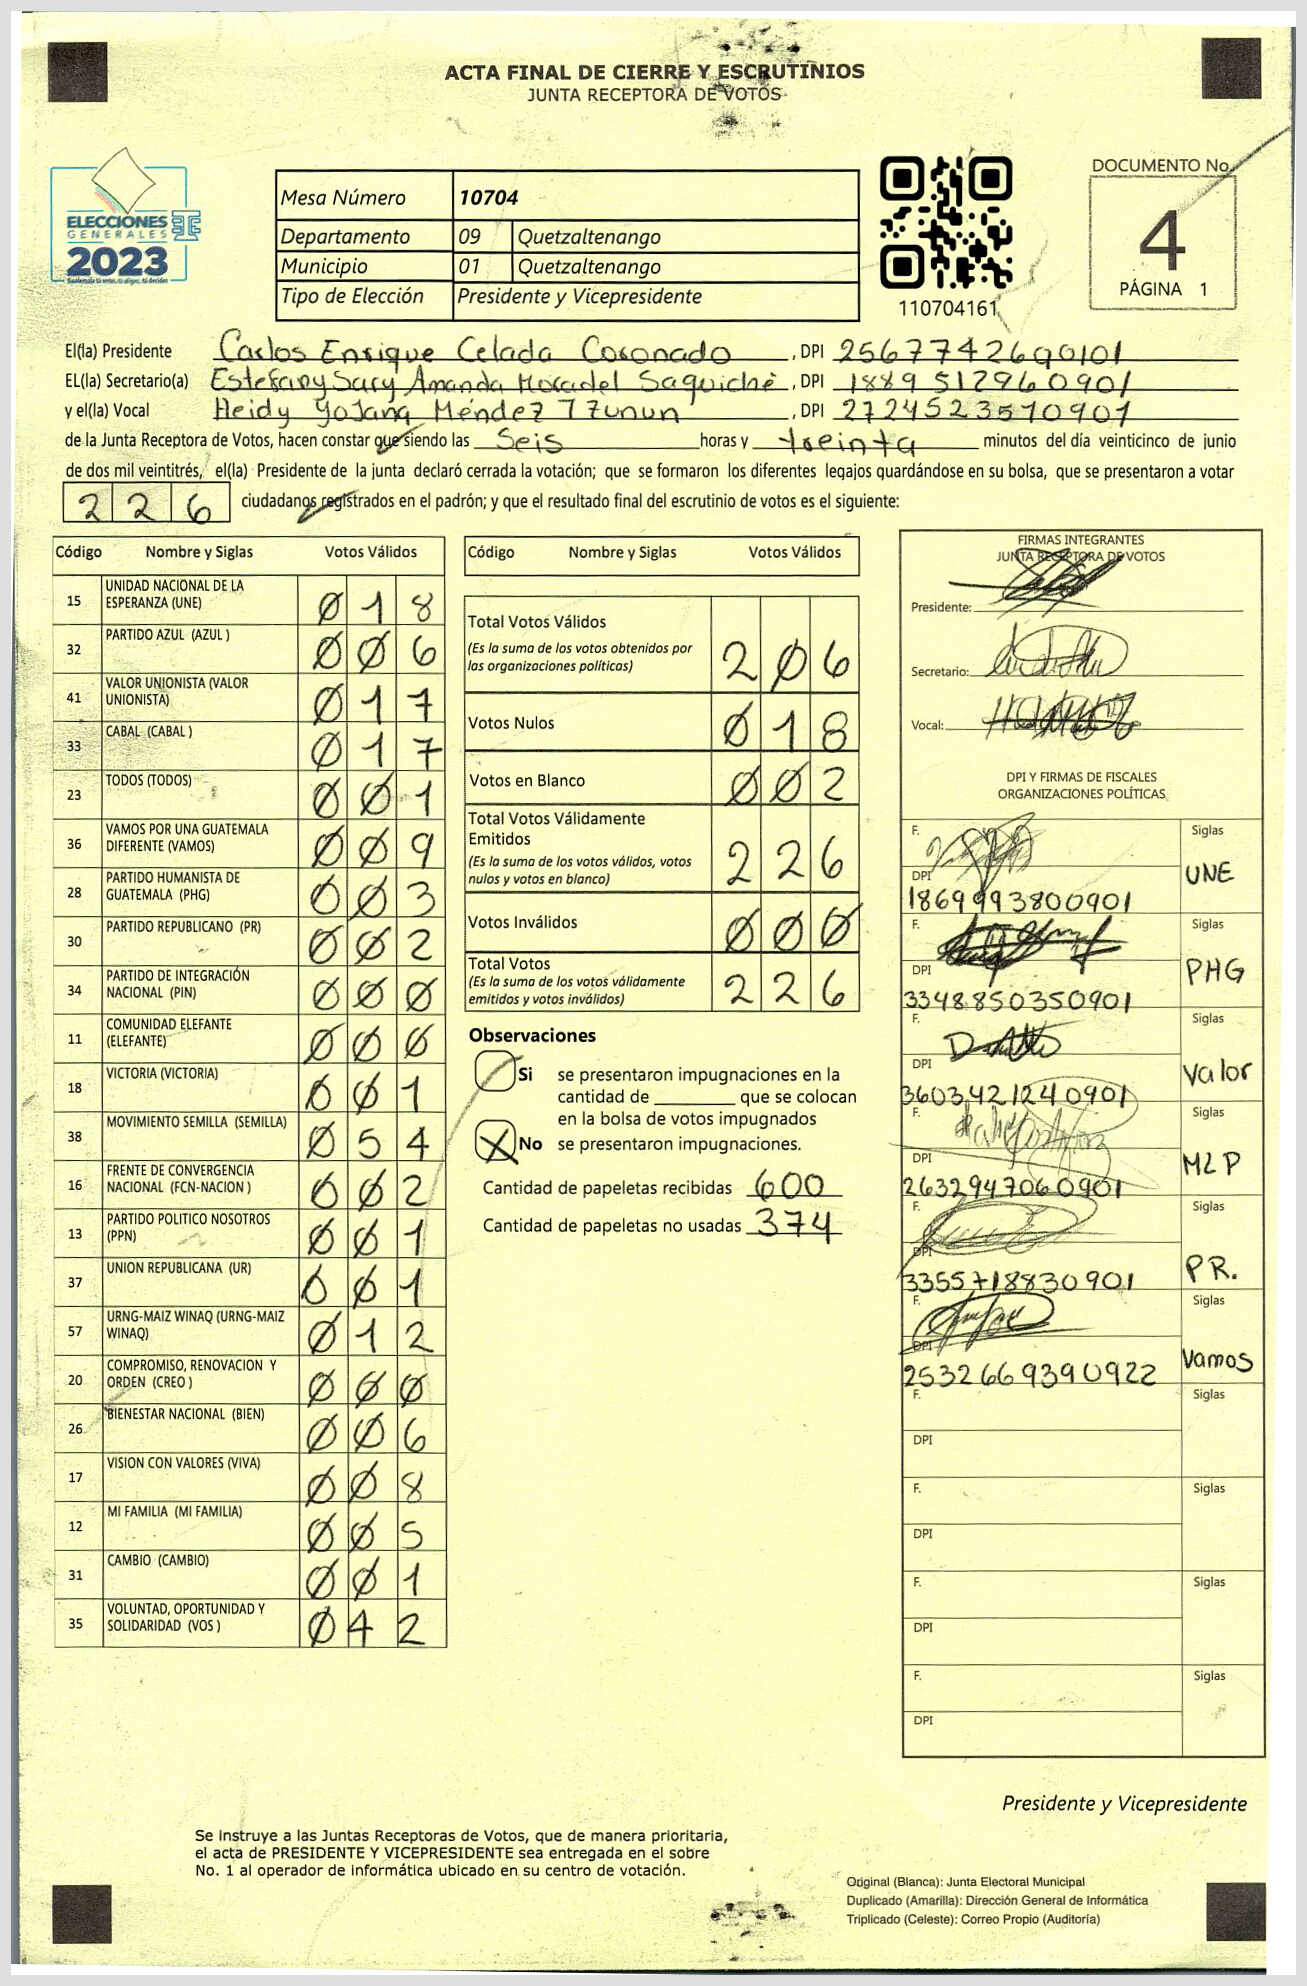 ACTA FINAL DE CIERRE Y ESCRUTINIOS
JUNTA RECEPTORA DE VOTOS
ELECCIONES
GENERALES
2023
Mesa Número 10704
Departamento 09 Quetzaltenango
Municipio 01 Quetzaltenango
Tipo de Elección Presidente y Vicepresidente
110704161
DOCUMENTO No.
4
PÁGINA 1
El(la) Presidente Carlos Enrique Celada Coronado, DPI 2567742690101
EL(la) Secretario(a) Estefany Sary Amanda Saquiché, DPI 1889512960901
y el(la) Vocal Heidy Yojana Méndez Tzunun, DPI 2724523570901
de la Junta Receptora de Votos, hacen constar que siendo las Seis horas y treinta minutos del día veinticinco de junio
de dos mil veintitrés, el(la) Presidente de la junta declaró cerrada la votación; que se formaron los diferentes legajos quardándose en su bolsa, que se presentaron a votar
226 ciudadanos registrados en el padrón; y que el resultado final del escrutinio de votos es el siguiente:
Código Nombre y Siglas Votos Válidos
15 UNIDAD NACIONAL DE LA ESPERANZA (UNE) 018
32 PARTIDO AZUL (AZUL ) 006
41 VALOR UNIONISTA (VALOR UNIONISTA) 017
33 CABAL (CABAL ) 017
23 TODOS (TODOS) 001
36 VAMOS POR UNA GUATEMALA DIFERENTE (VAMOS) 009
28 PARTIDO HUMANISTA DE GUATEMALA (PHG) 003
30 PARTIDO REPUBLICANO (PR) 002
34 PARTIDO DE INTEGRACIÓN NACIONAL (PIN) 000
11 COMUNIDAD ELEFANTE (ELEFANTE) 000
18 VICTORIA (VICTORIA) 001
38 MOVIMIENTO SEMILLA (SEMILLA) 054
16 FRENTE DE CONVERGENCIA NACIONAL (FCN-NACION ) 002
13 PARTIDO POLITICO NOSOTROS (PPN) 001
37 UNION REPUBLICANA (UR) 001
57 URNG-MAIZ WINAQ (URNG-MAIZ WINAQ) 012
20 COMPROMISO, RENOVACION Y ORDEN (CREO ) 000
26 BIENESTAR NACIONAL (BIEN) 006
17 VISION CON VALORES (VIVA) 008
12 MI FAMILIA (MI FAMILIA) 005
31 CAMBIO (CAMBIO) 001
35 VOLUNTAD, OPORTUNIDAD Y SOLIDARIDAD (VOS ) 042
Código Nombre y Siglas Votos Válidos
Total Votos Válidos 206
(Es la suma de los votos obtenidos por
las organizaciones políticas)
Votos Nulos 018
Votos en Blanco 002
Total Votos Válidamente
Emitidos 226
(Es la suma de los votos válidos, votos
nulos y votos en blanco)
Votos Inválidos 000
Total Votos 226
(Es la suma de los votos válidamente
emitidos y votos inválidos)
Observaciones
Si se presentaron impugnaciones en la
cantidad de ________ que se colocan
en la bolsa de votos impugnados
X No se presentaron impugnaciones.
Cantidad de papeletas recibidas 600
Cantidad de papeletas no usadas 374
FIRMAS INTEGRANTES
JUNTA RECEPTORA DE VOTOS
Presidente:
Secretario:
Vocal:
DPI Y FIRMAS DE FISCALES
ORGANIZACIONES POLÍTICAS
F. Siglas
DPI 1869993800901 UNE
F. Siglas
DPI 3348850350901 PHG
F. Siglas
DPI 3603421240901 Valor
F. Siglas
DPI 2632947060901 MLP
F. Siglas
DPI 3355718830901 PR.
F. Siglas
DPI 2532669390922 Vamos
F. Siglas
DPI
F. Siglas
DPI
F. Siglas
DPI
F. Siglas
DPI
Presidente y Vicepresidente
Se instruye a las Juntas Receptoras de Votos, que de manera prioritaria,
el acta de PRESIDENTE Y VICEPRESIDENTE sea entregada en el sobre
No. 1 al operador de informática ubicado en su centro de votación.
Original (Blanca): Junta Electoral Municipal
Duplicado (Amarilla): Dirección General de Informática
Triplicado (Celeste): Correo Propio (Auditoría)